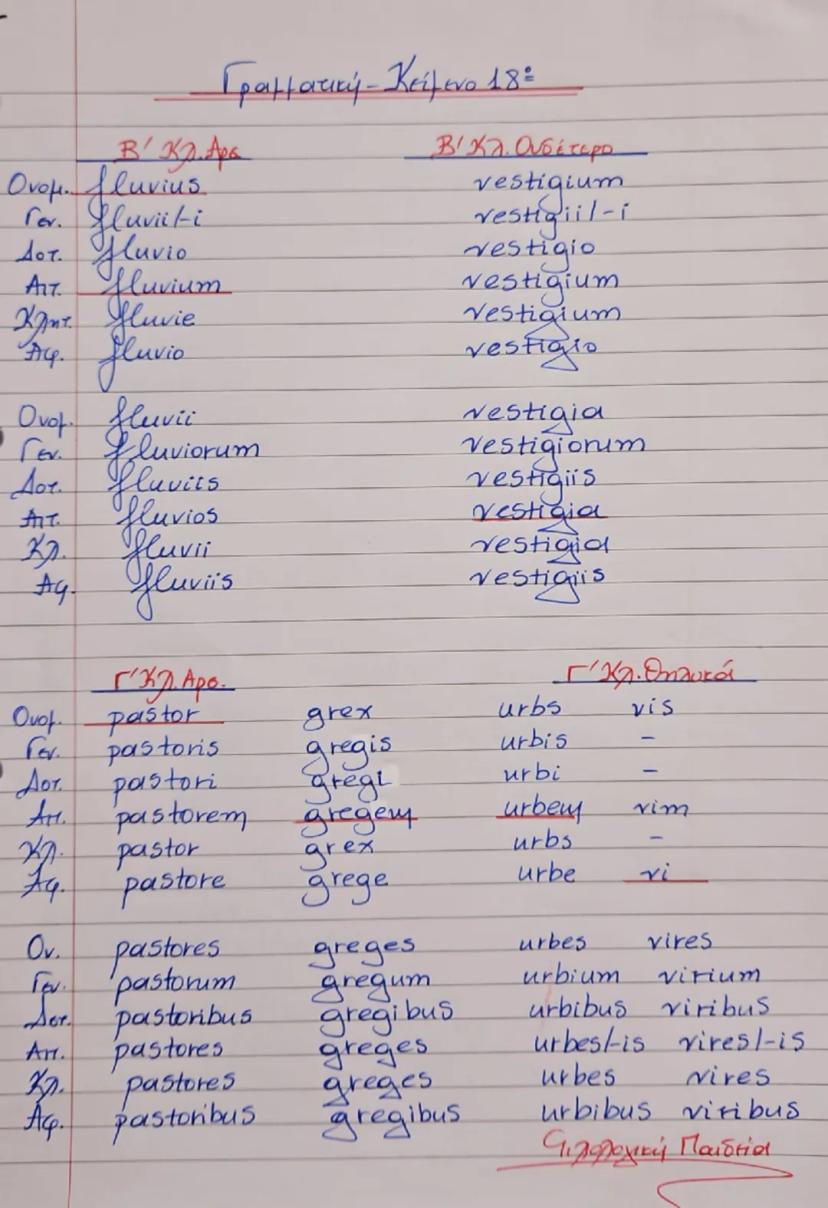 Γραμματική - Κείμενο 18ο
Β' Κλ. Αρσ. Β' Κλ. Ουδέτερο
Ονομ. fluvius vestigium
Γεν. fluvii/-i vestigii/-i
Δοτ. fluvio vestigio
Αιτ. fluvium vestigium
Κλητ. fluvie vestigium
Αφ. fluvio vestigio
Ονομ. fluvii vestigia
Γεν. fluviorum vestigiorum
Δοτ. fluviis vestigiis
Αιτ. fluvios vestigia
Κλ. fluvii vestigia
Αφ. fluviis vestigiis
Γ' Κλ. Αρσ. Γ' Κλ. Θηλυκά
Ονομ. pastor grex urbs vis
Γεν. pastoris gregis urbis -
Δοτ. pastori gregi urbi -
Αιτ. pastorem gregem urbem vim
Κλ. pastor grex urbs -
Αφ. pastore grege urbe vi
Ον. pastores greges urbes vires
Γεν. pastorum gregum urbium virium
Δοτ. pastoribus gregibus urbibus viribus
Αιτ. pastores greges urbes/-is vires/-is
Κλ. pastores greges urbes vires
Αφ. pastoribus gregibus urbibus viribus
Φιλολογική Παιδεία